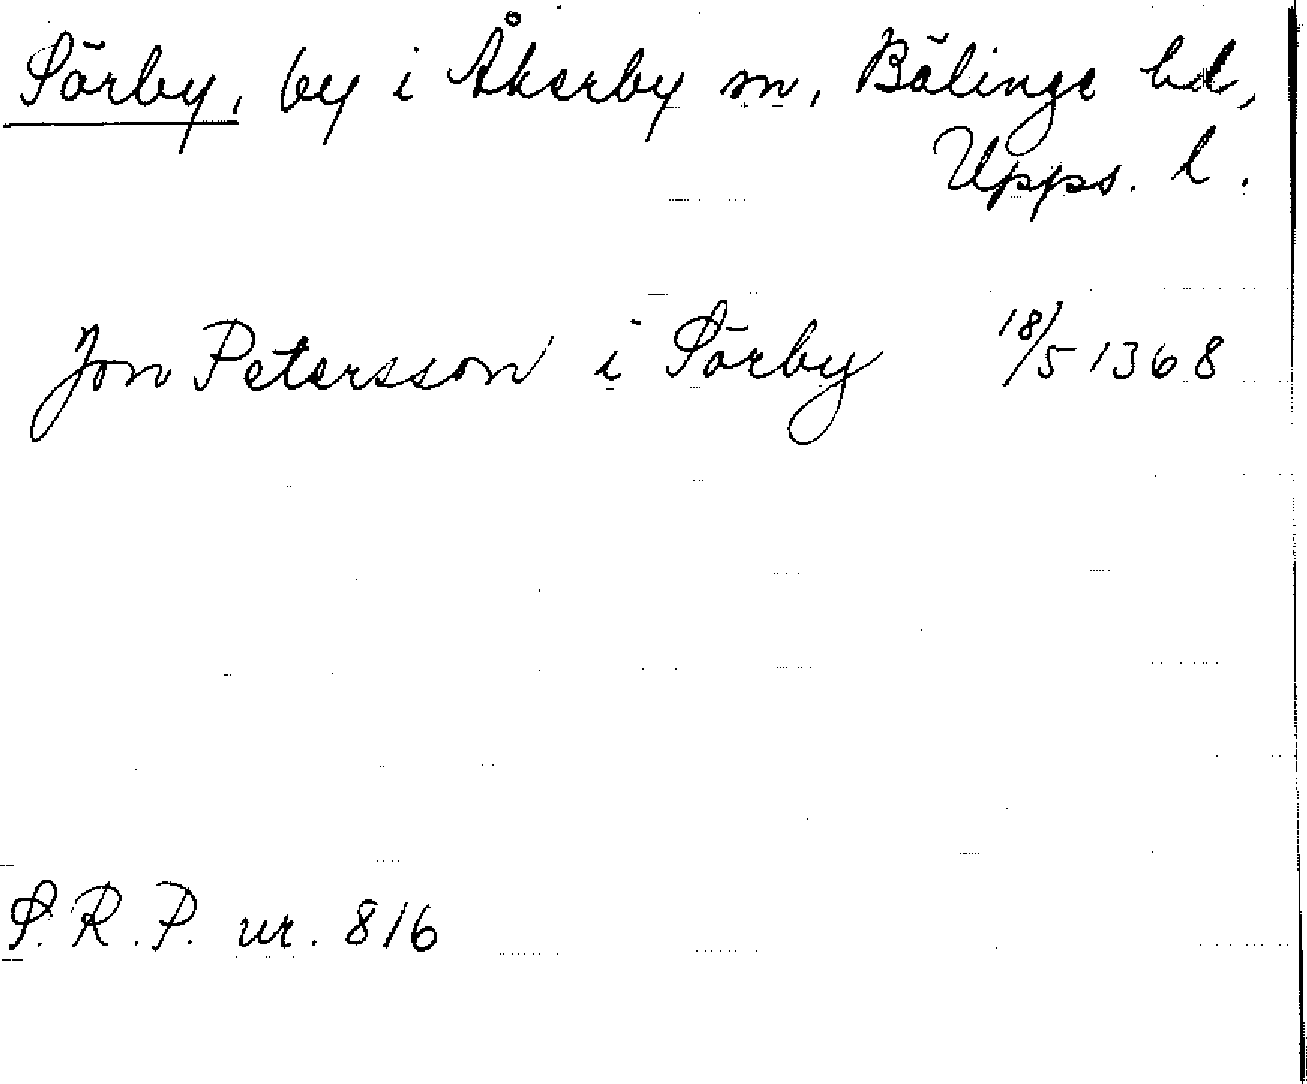 Sörby, by i Åkerby sn, Bälinge hd,
Upps. l.
Jon Petersson i Sörby 18/5 1368
S.R.P. nr. 816